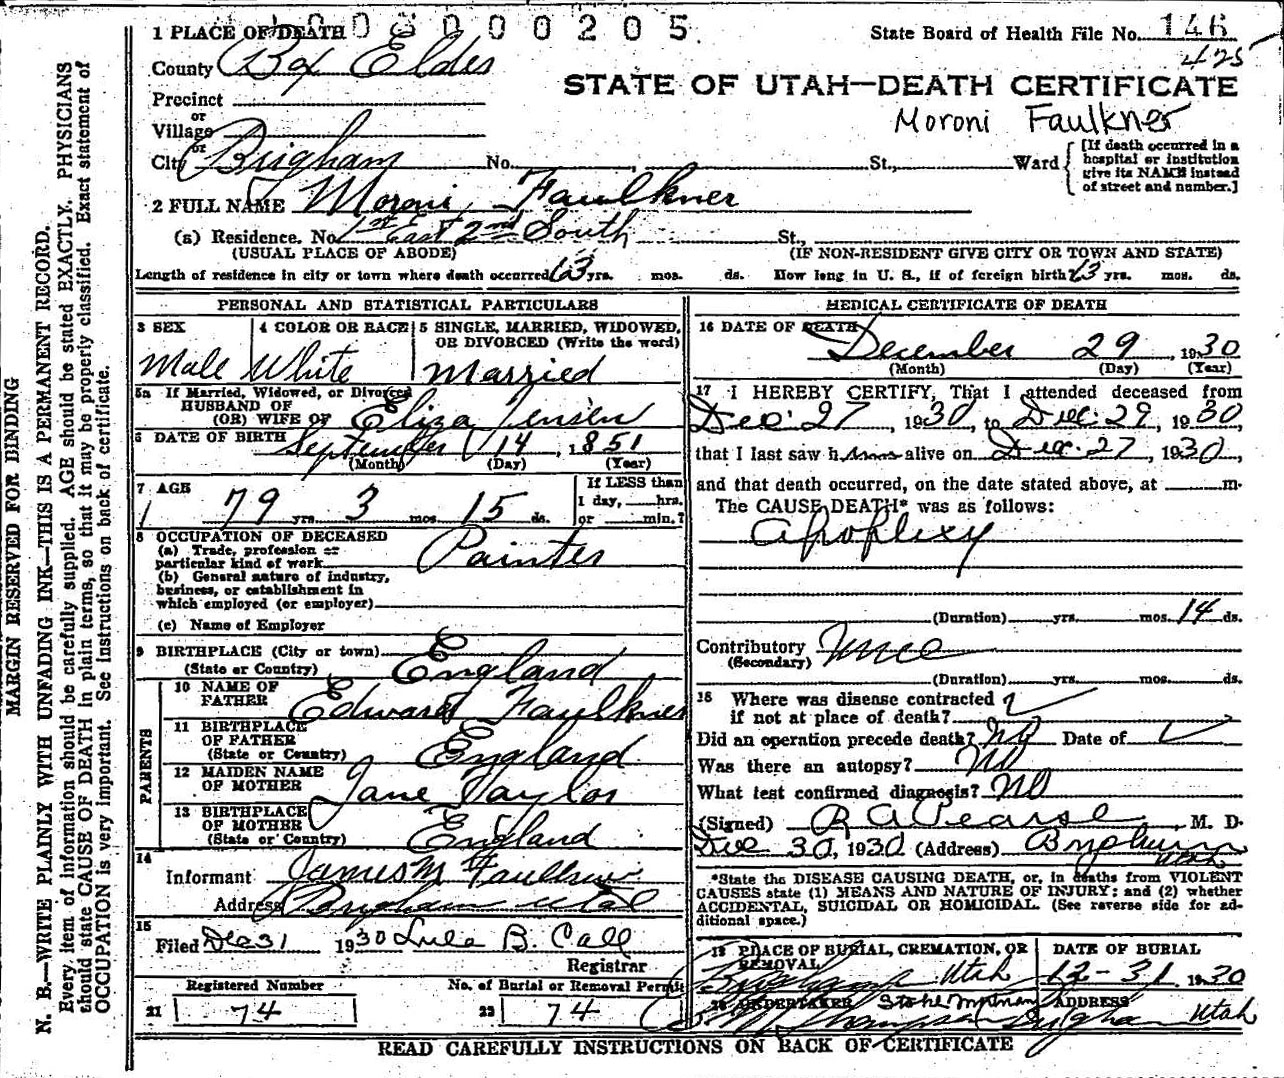 1003000205
State Board of Health File No. 146
425
1 PLACE OF DEATH
County Box Elder
STATE OF UTAH—DEATH CERTIFICATE
Precinct
or
Village
or
Moroni Faulkner
City Brigham No. , St., Ward
[If death occurred in a
hospital or institution
give its NAME instead
of street and number.]
2 FULL NAME Moroni Faulkner
(a) Residence. No. 1st East 2nd South St.,
(USUAL PLACE OF ABODE) (IF NON-RESIDENT GIVE CITY OR TOWN AND STATE)
Length of residence in city or town where death occurred 63 yrs. mos. ds. How long in U. S., if of foreign birth? 63 yrs. mos. ds.
PERSONAL AND STATISTICAL PARTICULARS
3 SEX 4 COLOR OR RACE 5 SINGLE, MARRIED, WIDOWED,
OR DIVORCED (Write the word)
Male White Married
5a If Married, Widowed, or Divorced
HUSBAND OF
(OR) WIFE OF Eliza Jensen
6 DATE OF BIRTH September 14, 1851
(Month) (Day) (Year)
7 AGE
79 yrs. 3 mos. 15 ds.
If LESS than
1 day, hrs.
or min.?
8 OCCUPATION OF DECEASED
(a) Trade, profession or
particular kind of work Painter
(b) General nature of industry,
business, or establishment in
which employed (or employer)
(c) Name of Employer
9 BIRTHPLACE (City or town)
(State or Country) England
PARENTS
10 NAME OF
FATHER Edward Faulkner
11 BIRTHPLACE
OF FATHER
(State or Country) England
12 MAIDEN NAME
OF MOTHER Jane Taylor
13 BIRTHPLACE
OF MOTHER
(State or Country) England
14
Informant James M Faulkner
Address Brigham Utah
15
Filed Dec 31 1930 Lula B. Call
Registrar
Registered Number No. of Burial or Removal Permit
21 74 22 74
MEDICAL CERTIFICATE OF DEATH
16 DATE OF DEATH
December 29, 1930
(Month) (Day) (Year)
17 I HEREBY CERTIFY, That I attended deceased from
Dec. 27, 1930, to Dec. 29, 1930,
that I last saw him alive on Dec. 27, 1930,
and that death occurred, on the date stated above, at m.
The CAUSE DEATH* was as follows:
Apoplexy
(Duration) yrs. mos. 14 ds.
Contributory None
(Secondary)
(Duration) yrs. mos. ds.
18 Where was disease contracted
if not at place of death?
Did an operation precede death? No Date of
Was there an autopsy? No
What test confirmed diagnosis? No
(Signed) R A Pearse, M. D.
Dec 30, 1930 (Address) Brigham
Utah
*State the DISEASE CAUSING DEATH, or, in deaths from VIOLENT
CAUSES state (1) MEANS AND NATURE OF INJURY; and (2) whether
ACCIDENTAL, SUICIDAL OR HOMICIDAL. (See reverse side for ad-
ditional space.)
19 PLACE OF BURIAL, CREMATION, OR
REMOVAL
Brigham Utah
DATE OF BURIAL
12-31 1930
20 UNDERTAKER ADDRESS
Thompson Brigham Utah
READ CAREFULLY INSTRUCTIONS ON BACK OF CERTIFICATE
MARGIN RESERVED FOR BINDING
N. B.—WRITE PLAINLY WITH UNFADING INK—THIS IS A PERMANENT RECORD.
Every item of information should be carefully supplied. AGE should be stated EXACTLY. PHYSICIANS
should state CAUSE OF DEATH in plain terms, so that it may be properly classified. Exact statement of
OCCUPATION is very important. See instructions on back of certificate.